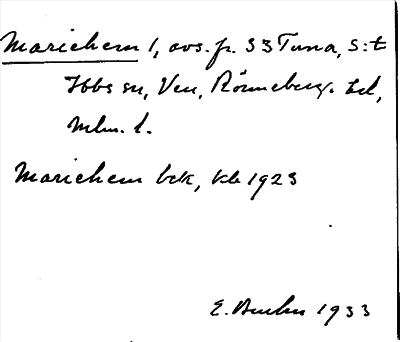 Mariehem 1, avs. fr. 33 Tuna, S:t
Ibbs sn, Ven, Rönneberg. hd,
Mlm. l.
Mariehem bek, kb 1923
E. 1933